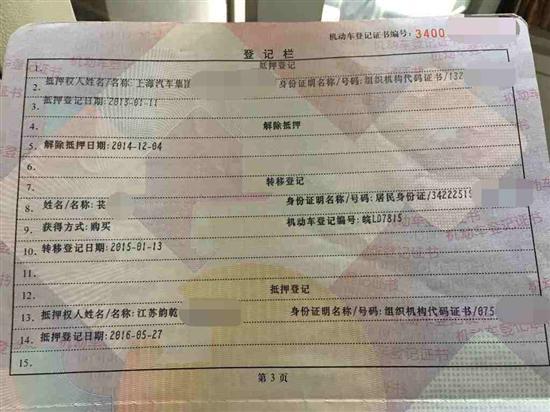 机动车登记证书编号: 3400
登记栏
1. 抵押登记
2. 抵押权人姓名/名称: 上海汽车集 身份证明名称/号码: 组织机构代码证书/132
3. 抵押登记日期: 2013-01-11
4. 解除抵押
5. 解除抵押日期: 2014-12-04
6.
7. 转移登记
8. 姓名/名称: 身份证明名称/号码: 居民身份证/34222519
9. 获得方式: 购买 机动车登记编号: 皖LD7815
10. 转移登记日期: 2015-01-13
11.
12. 抵押登记
13. 抵押权人姓名/名称: 江苏韵乾 身份证明名称/号码: 组织机构代码证书/075
14. 抵押登记日期: 2016-05-27
15.
第 3 页